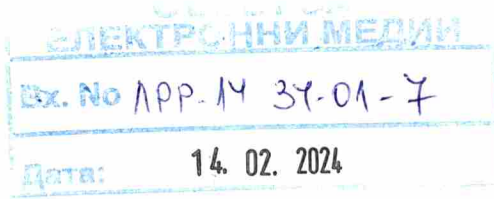 ЕЛЕКТРОННИ МЕДИИ
Вх. No ЛРР-14 34-01-7
Дата: 14. 02. 2024